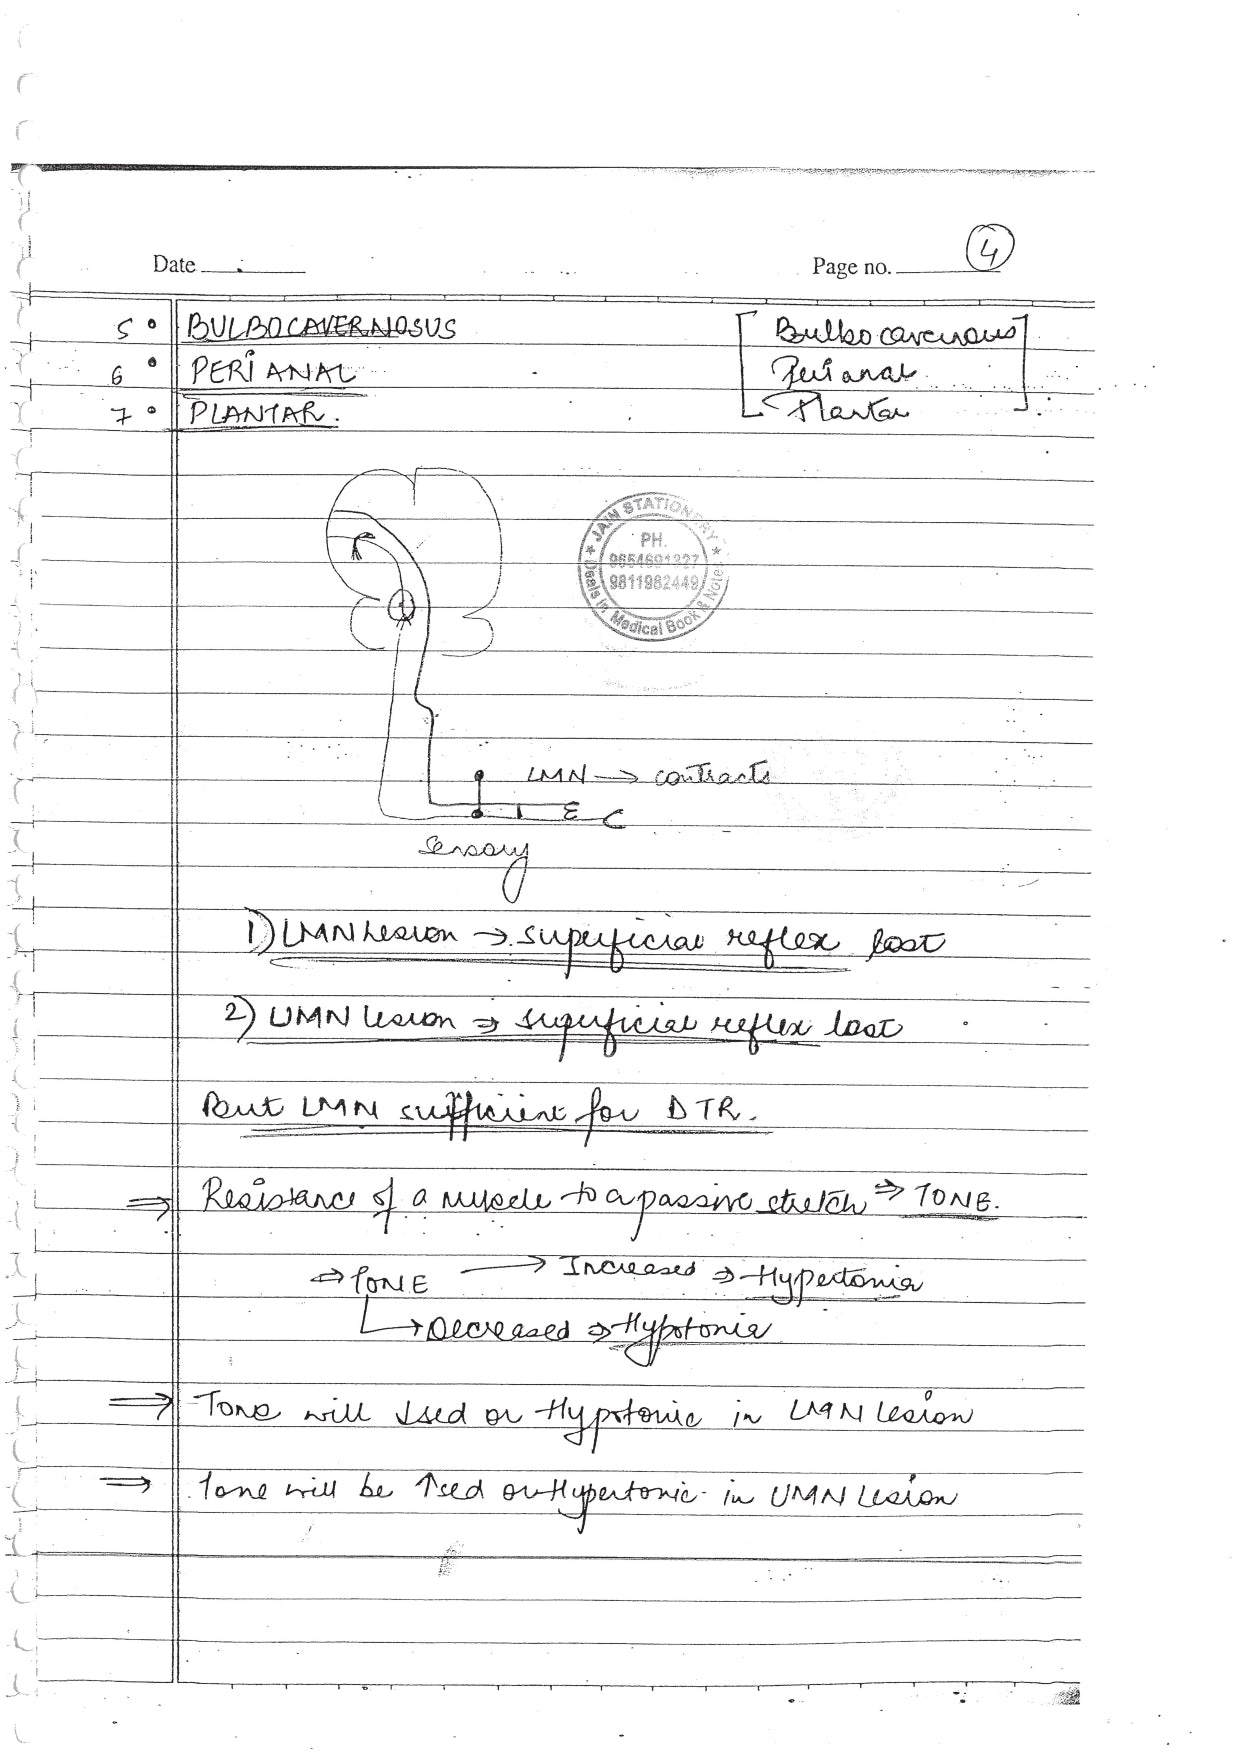 4
Date
Page no.
5° BULBOCAVERNOSUS [Bulbocavernous]
6° PERIANAL Perianal
7° PLANTAR. Plantar
★ JAIN STATIONERY ★
PH.
9654691327
9811982449
Deals in Medical Book & Notes
LMN → contracts
Sensory
1) LMN Lesion → superficial reflex lost
2) UMN lesion ⇒ superficial reflex lost
But LMN sufficient for DTR.
⇒ Resistance of a muscle to a passive stretch ⇒ TONE.
⇒ TONE → Increased ⇒ Hypertonia
→ Decreased ⇒ Hypotonia
⇒ Tone will ↓sed or Hypotonic in LMN lesion
⇒ Tone will be ↑sed or Hypertonic in UMN Lesion